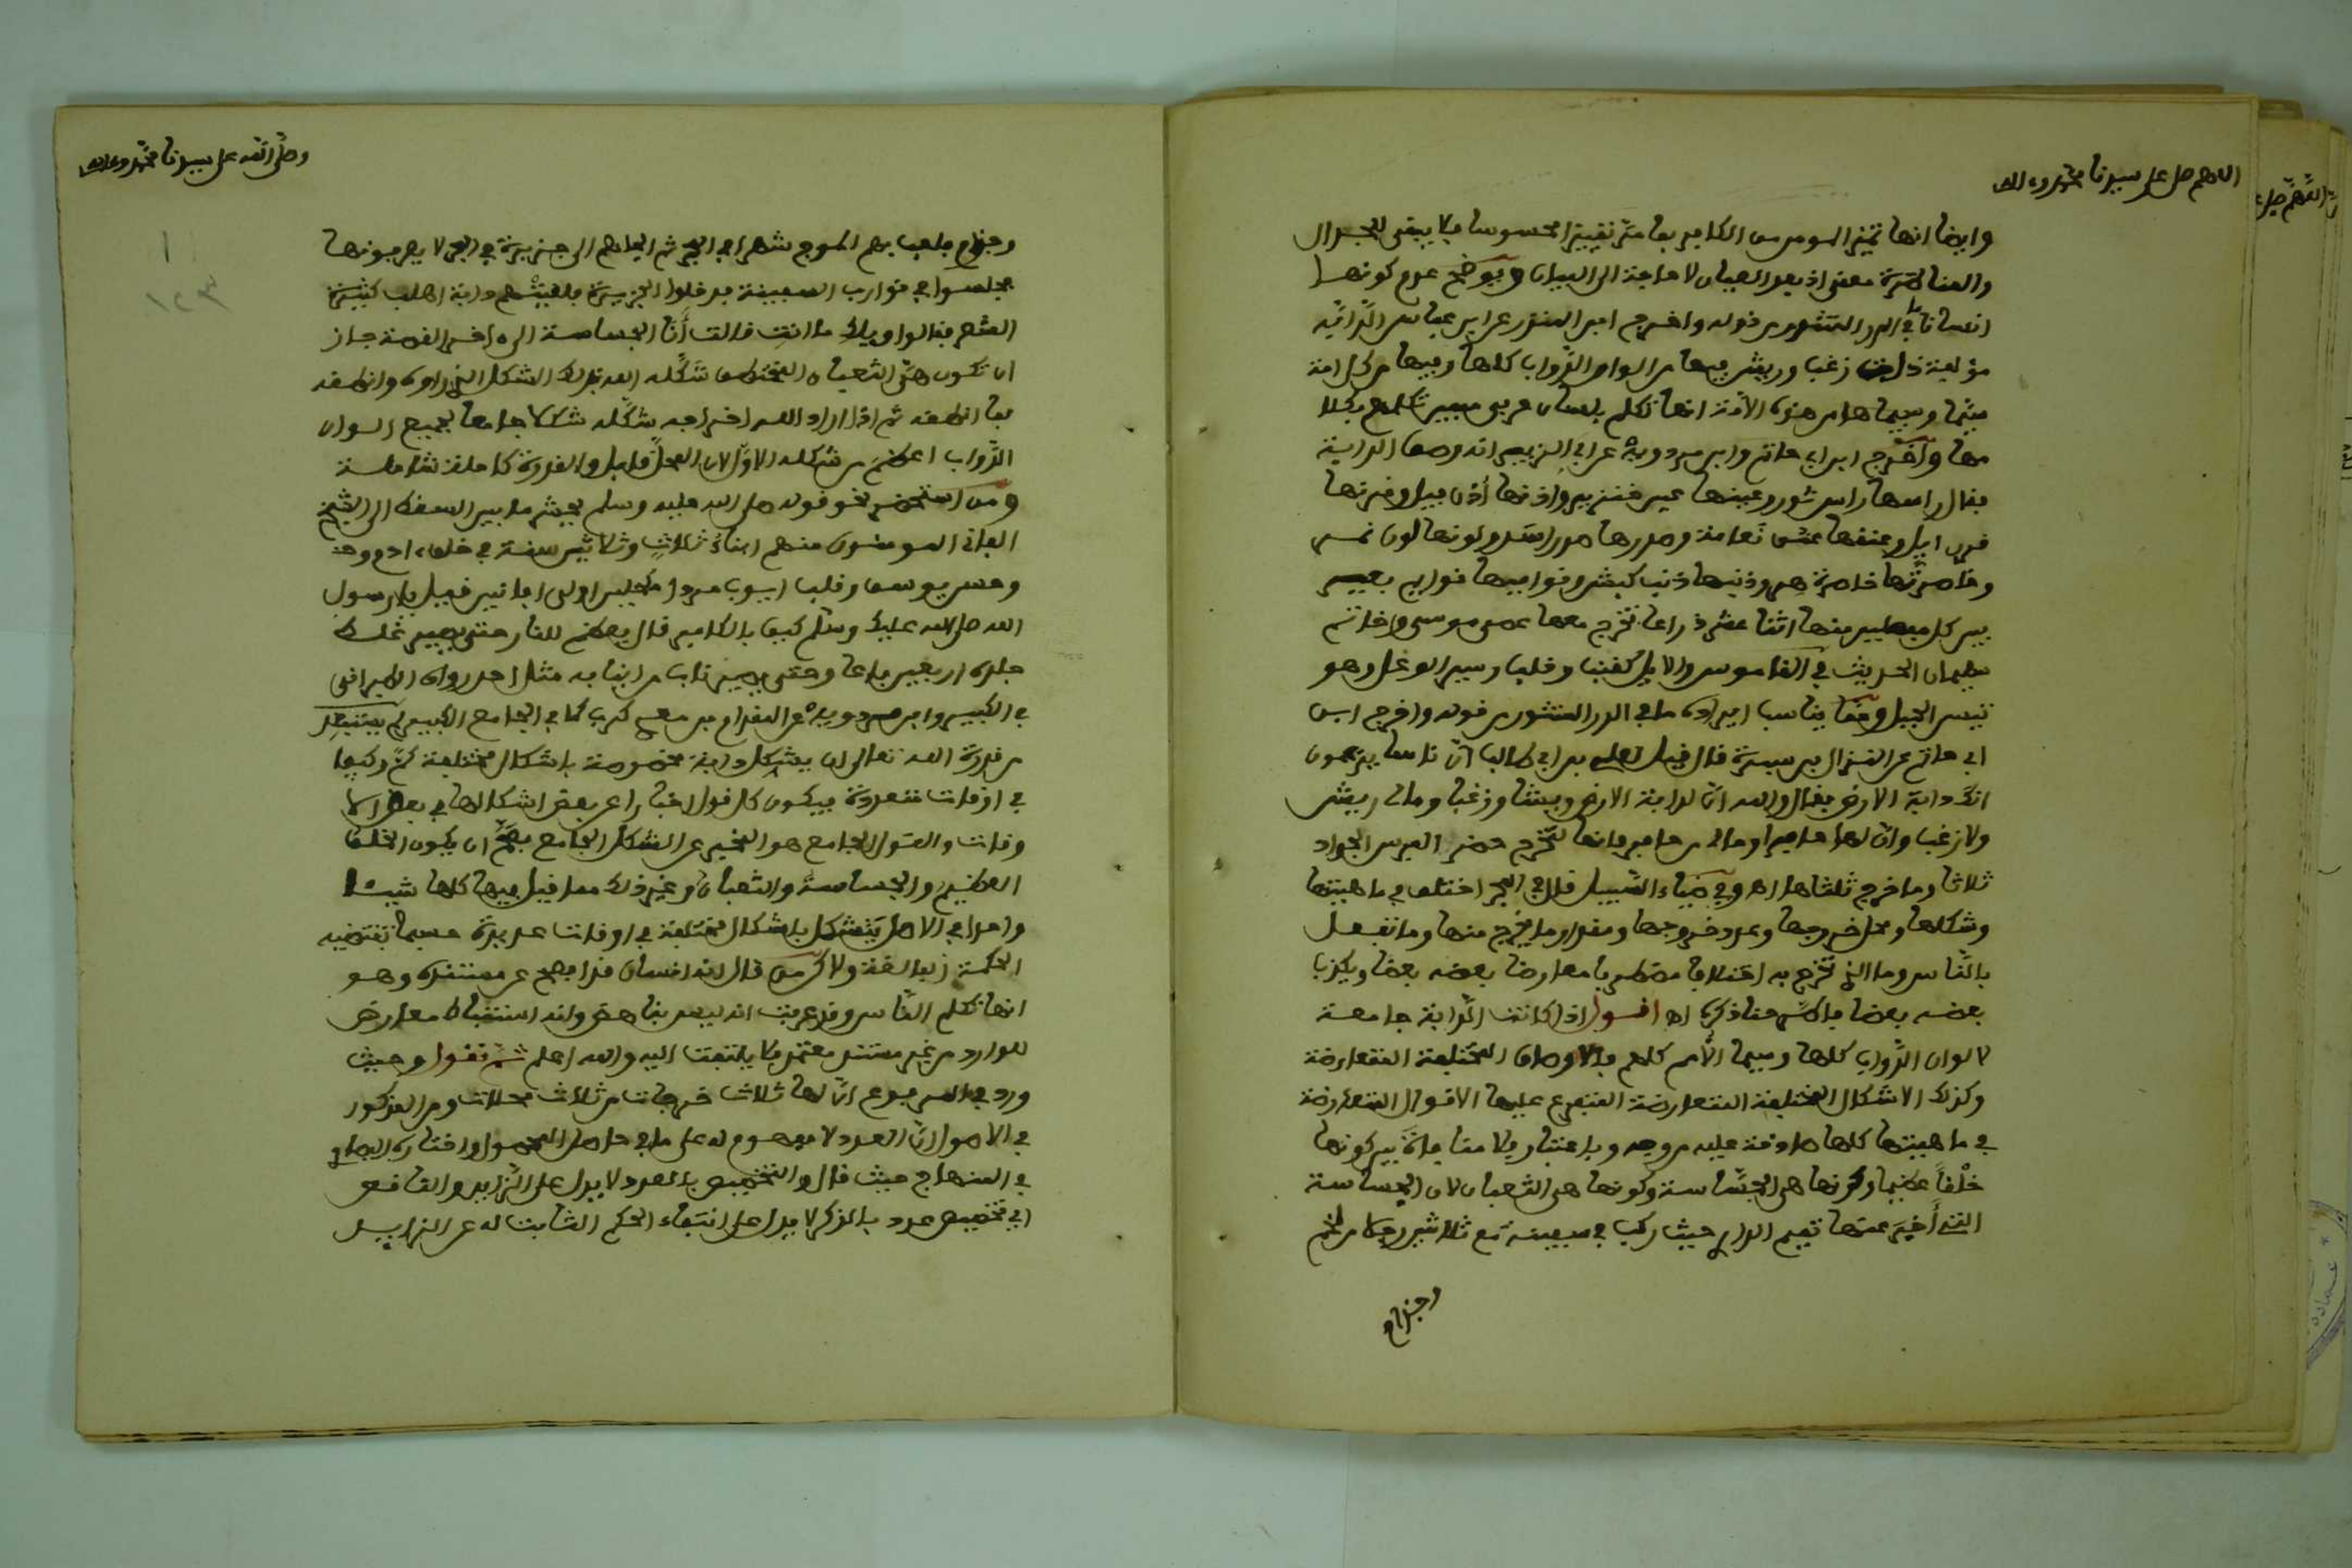 اللهم صل على سيدنا محمد وءاله
وايضا انها تميز المومن من الكافر بها متر تقييزا محسوسا فلا يبقى للجدال
والمناظرة معنى اذ بعد العيان لا حاجة الى البيان ويوضح عدم كونها
انسانا ما في الدر المنثور من قوله واخرج ابن المنذر عن ابن عباس الدّابّة
مؤلفة ذات زغب وريش فيها من الوان الدّواب كلها وفيها من كل امة
سيما وسيماها من هذه الامّة انها تكلم بلسان عربي مبين تكلمهم بكلا
مها واخرج ابن ابي حاتم وابن مردويه عن ابي الزبير انه وصف الدابة
فقال راسها راس ثور وعينها عين خنزير واذنها أذن فيل وقرنها
قرن ايل وعنقها عنق نعامة وصدرها صدر اسد ولونها لون نمر
وخاصرتها خاصرة هر وذنبها ذنب كبش وقوايمها قوايم بعير
بين كل مفصلين منها اثنا عشر ذراعا تخرج معها عصى موسى وخاتم
سليمان الحديث في القاموس والايل كقنب وخلب وسيد الوعل وهو
تيس الجبل ومما يناسب ايراده ما في الدر المنثور من قوله واخرج ابن
ابي حاتم عن النزال بن سبرة قال قيل لعلي بن ابي طالب انّ ناسا يزعمون
انك دابة الارض فقال والله انّ لدابة الارض ريشا وزغبا ومالي ريش
ولا زغب وان لها حافرا ومالي من حافر وانها لتخرج حضر الفرس الجواد
ثلاثا وما خرج ثلثاها اهـ وفي ضياء السّبيل قال في البحر اختلف في ماهيتها
وشكلها ومحل خروجها وعدد خروجها ومقدار ما يخرج منها وما تفعل
بالنّاس وما الذي تخرج به اختلافا مضطربا معارضا بعضه بعضا ويكذب
بعضه بعضا فاطّرحنا ذكره اهـ اقول اذا كانت الدّابة جامعة
لالوان الدّواب كلها وسيما الأمم كلهم فالاوصاف المختلفة المتعارضة
وكذلك الاشكال المختلفة المتعارضة المتفرع عليها الاقوال المتعارضة
في ماهيتها كلها صادقة عليه من وجه وباعتبار فلا منافاة بين كونها
خلْقاً عظيما وكونها هي الجسّاسة وكونها هي الثعبان لان الجساسة
التي أخبَر عنها تميم الداري حيث ركب في سفينة مع ثلاثين رجلا من لخم
وجذام
وصلّى الله على سيدنا محمّد وءاله
١
١٢٣
وجذام فلعب بهم الموج شهرا في البحر ثم الجاهم الى جزيرة في البحر لا يعرفونها
فجلسوا في قوارب السفينة فدخلوا الجزيرة فلقيتهم دابة اهلب كثيرة
الشعر فقالوا ويلك ما انت قالت أنا الجساسة الى ءاخر القصة جاز
ان تكون هي الثعبان المختطف شكّله الله بذلك الشكل الذي راوه وانطقه
بما انطقه ثم اذا اراد الله اخراجه شكّله شكلا جامعا لجميع الوان
الدّواب اعظم من شكله الاوّل لان المحلّ قابل والقدرة كاملة شاملة
ومن استحضر نحو قوله صلى الله عليه وسلم يحشر ما بين السقط الى الشيخ
الفاني المومنون منهم ابناءُ ثلاثٍ وثلاثين سنة في خلق ءادم وهـ
وحسن يوسف وقلب ايوب مردا مكحلين اولي افانين قيل يا رسول
الله صلى الله عليك وسلّم كيف بالكافر قال يعظم للنار حتى يصير غلظ
جلده اربعين باعا وحتى يصير ناب من انيابه مثل احد رواه الطبراني
في الكبير وابن مردويه عن المقدام بن معدي كرب كما في الجامع الكبير لم يستبعد
من قدرة الله تعالى ان يشكل دابة مخصوصة باشكال مختلفة كمّ وكيفا
في اوقات متعددة فيكون كل قول اخبارا عن بعض اشكالها في بعض الا
وقات والقول الجامع هو المخبر عن الشكل الجامع فصحّ ان يكون الخلق
العظيم والجساسة والثعبان وغير ذلك مما قيل فيها كلها شيئا
واحدا في الاصل يتشكل باشكال مختلفة في اوقات عديدة حسبما تقتضيه
الحكمة البالغة ولاكن من قال انه انسان فدا فصح عن مستنده وهو
انها تكلم النّاس وقد عرفت انه ليس بناهض وانه استنباط معارض
للوارد من غير مستند معتمد فلا يلتفت اليه والله اعلم ثم نقول وحيث
ورد في المرفوع انّ لها ثلاث خرجات من ثلاث محلات ومن المذكور
في الاصول انّ العدد لا مفهوم له على ما في حاصل المحصول واختاره البيضاوي
في المنهاج حيث قال والتخصيص بالعدد لا يدل على الزايد والناقص
اي تخصيص عدد بالذكر لا يدل على انتفاء الحكم الثابت له عن الزايد